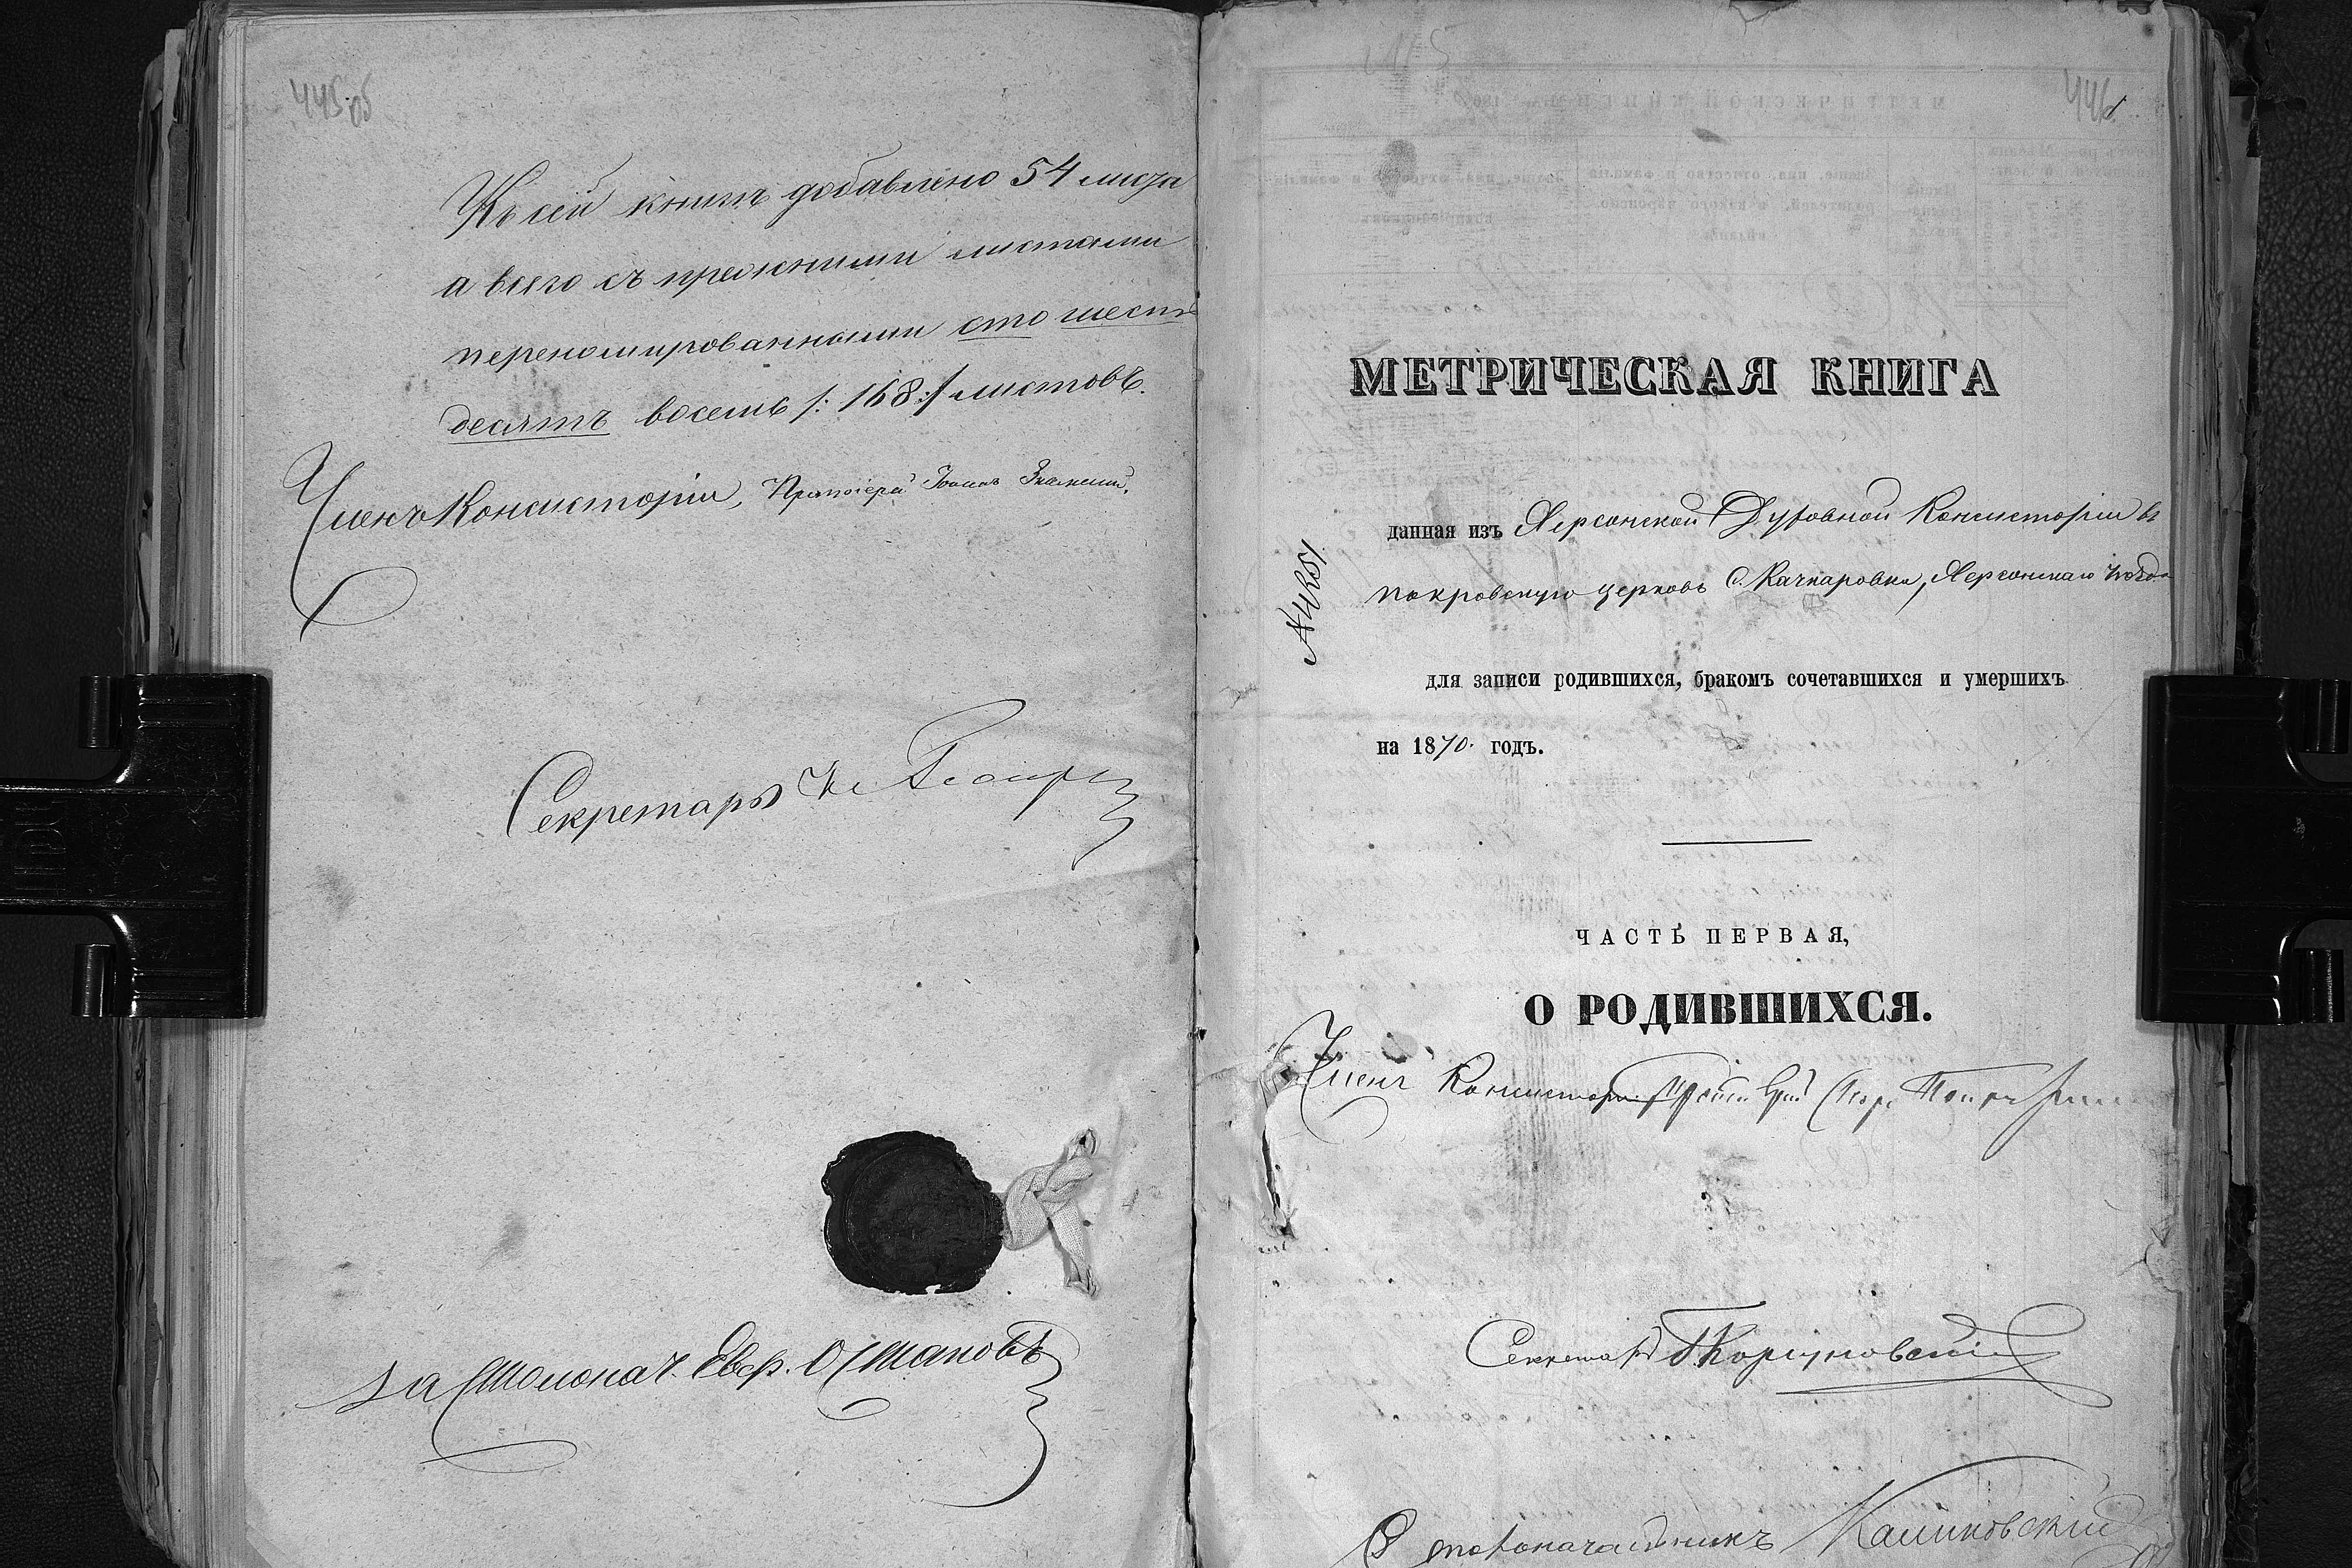 445об
Къ сей книгѣ добавлено 54 листа
а всего съ прежними листами
переномированными сто шесть
десятъ восемь /: 168 :/ листовъ.
Членъ Консисторіи, Протоіерей Іоаннъ Знаменский.
Секретарь
За Столонач. Евф. Остаповъ
446
МЕТРИЧЕСКАЯ КНИГА
данная изъ Херсонской Духовной Консисторіи въ
покровскую церковь с. Качкаровки, Херсонскаго уѣзда
для записи родившихся, бракомъ сочетавшихся и умершихъ
на 1870. годъ.
ЧАСТЬ ПЕРВАЯ,
О РОДИВШИХСЯ.
Членъ Консисторіи
Секретарь
Столоначальникъ